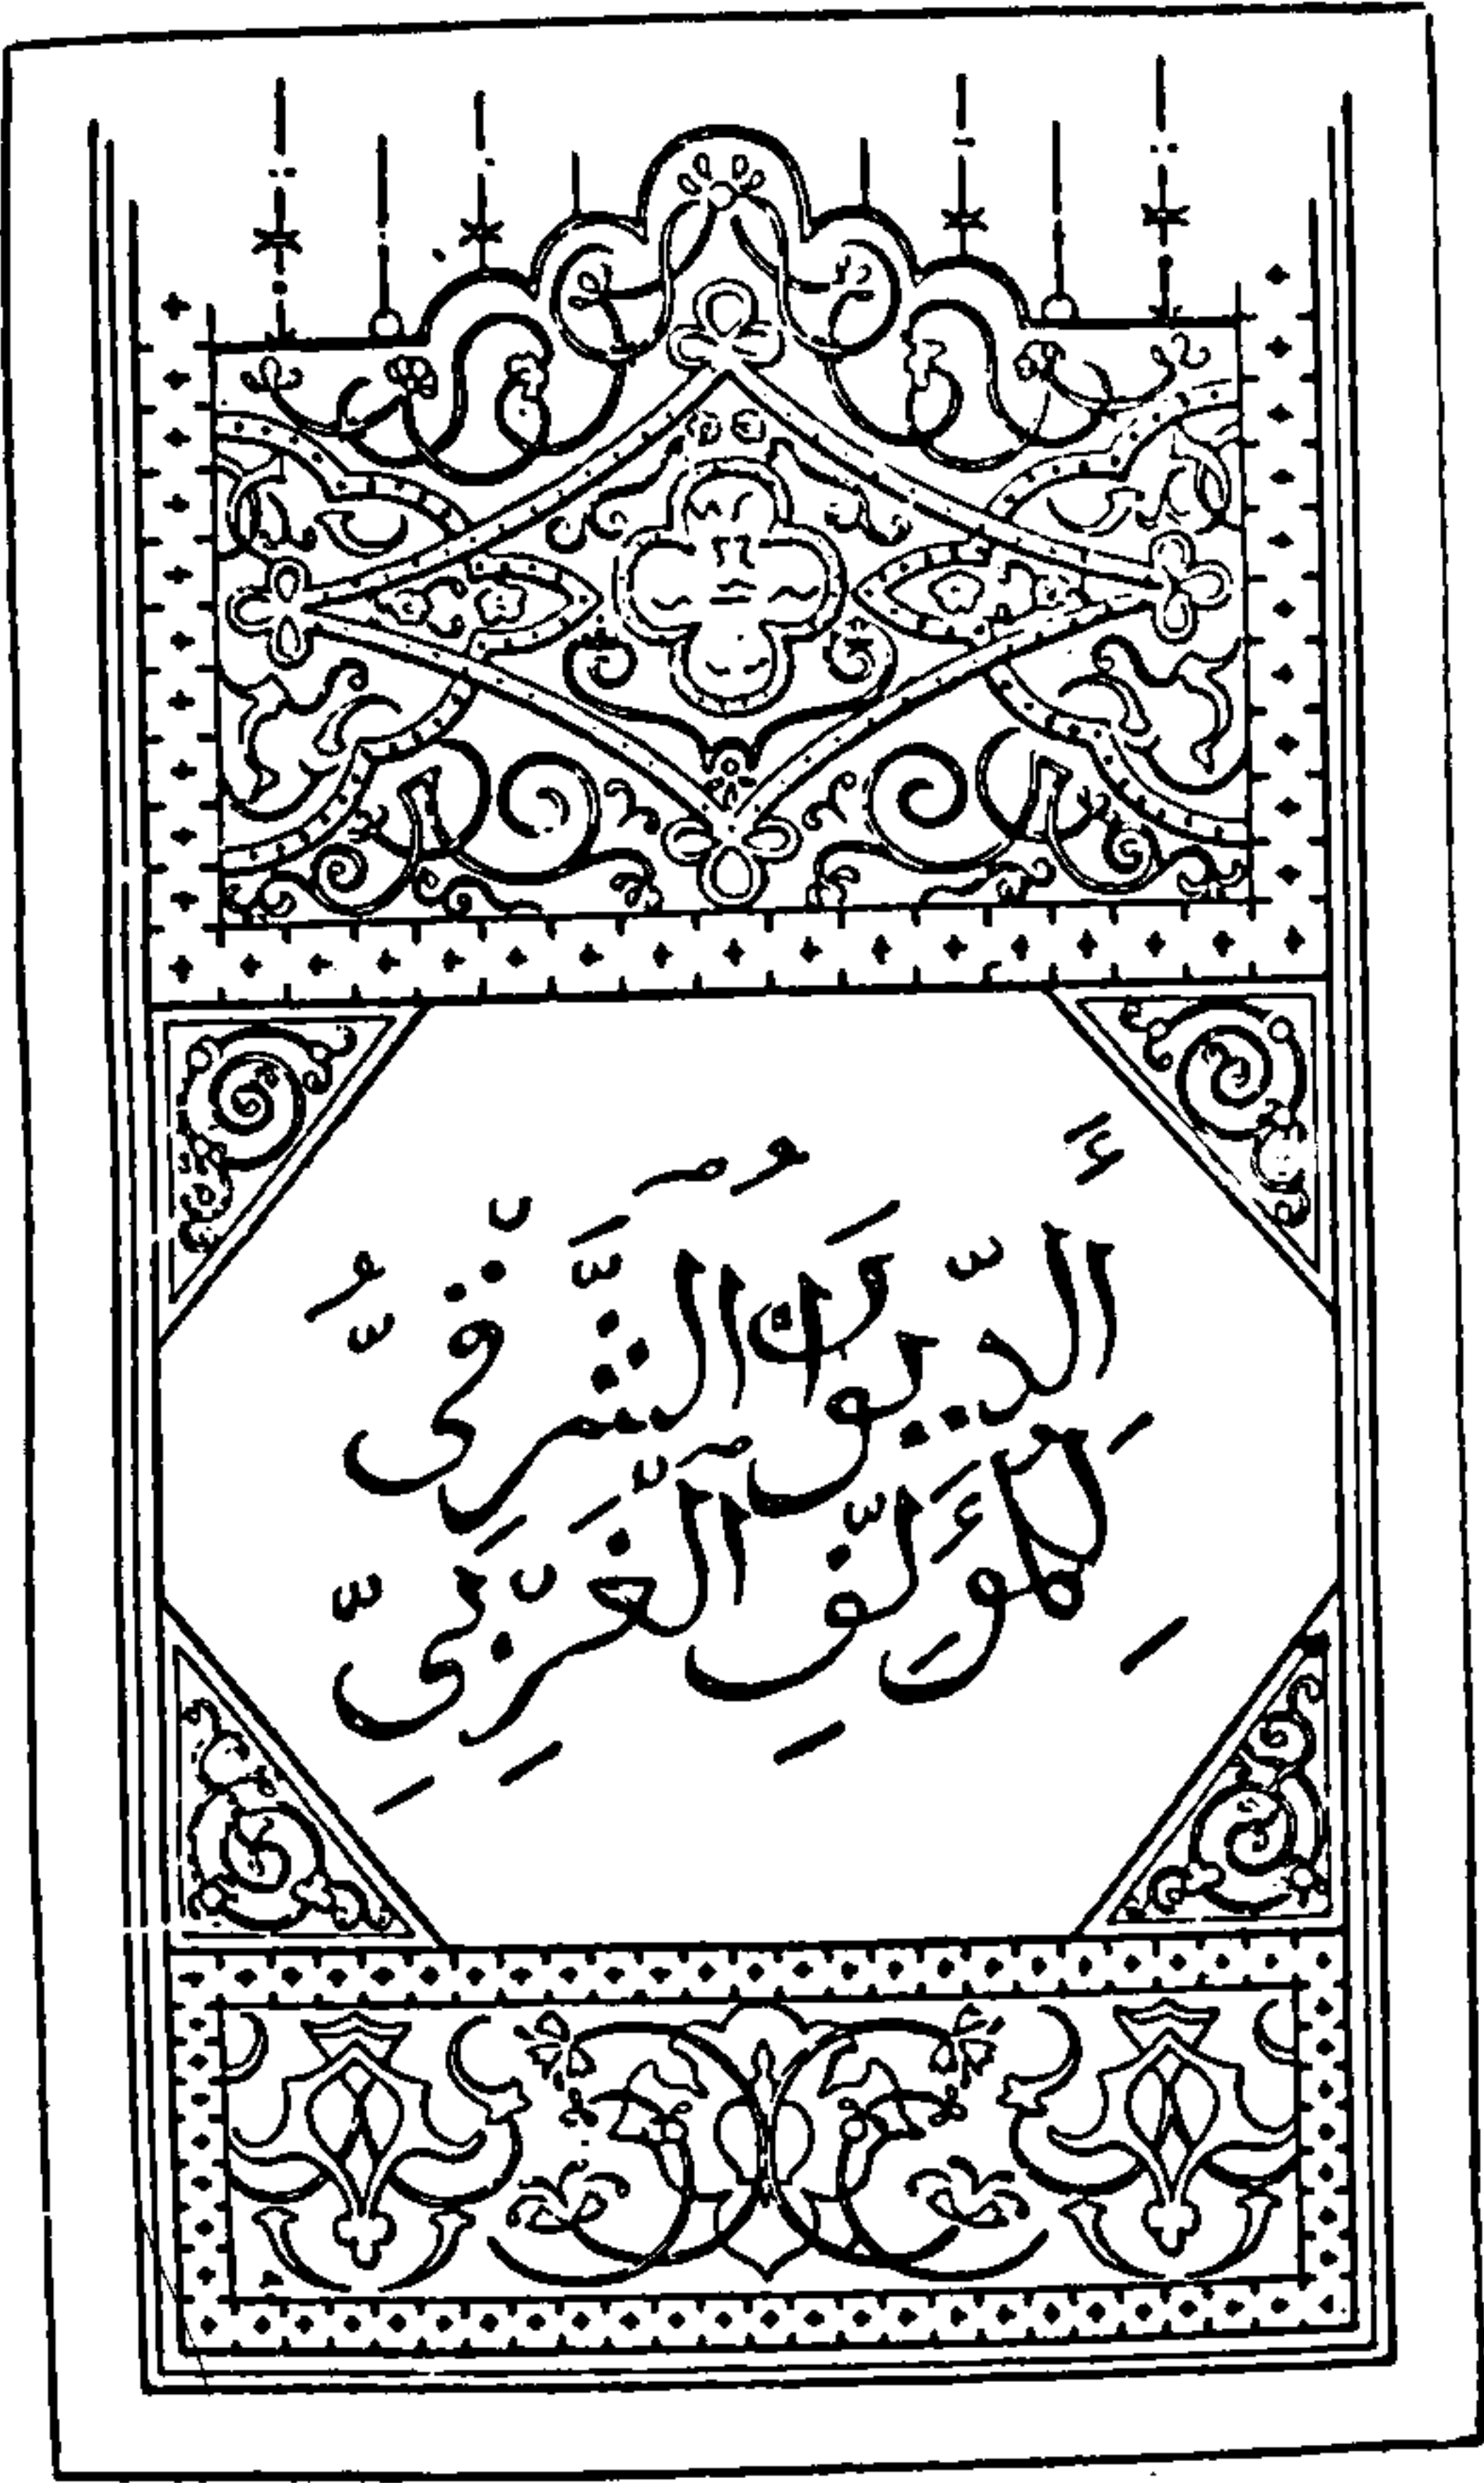 أَلدِّيوَانُ ٱلشَّرْقِيُّ
لِلمُؤَلِّفِ ٱلغَرْبِيِّ